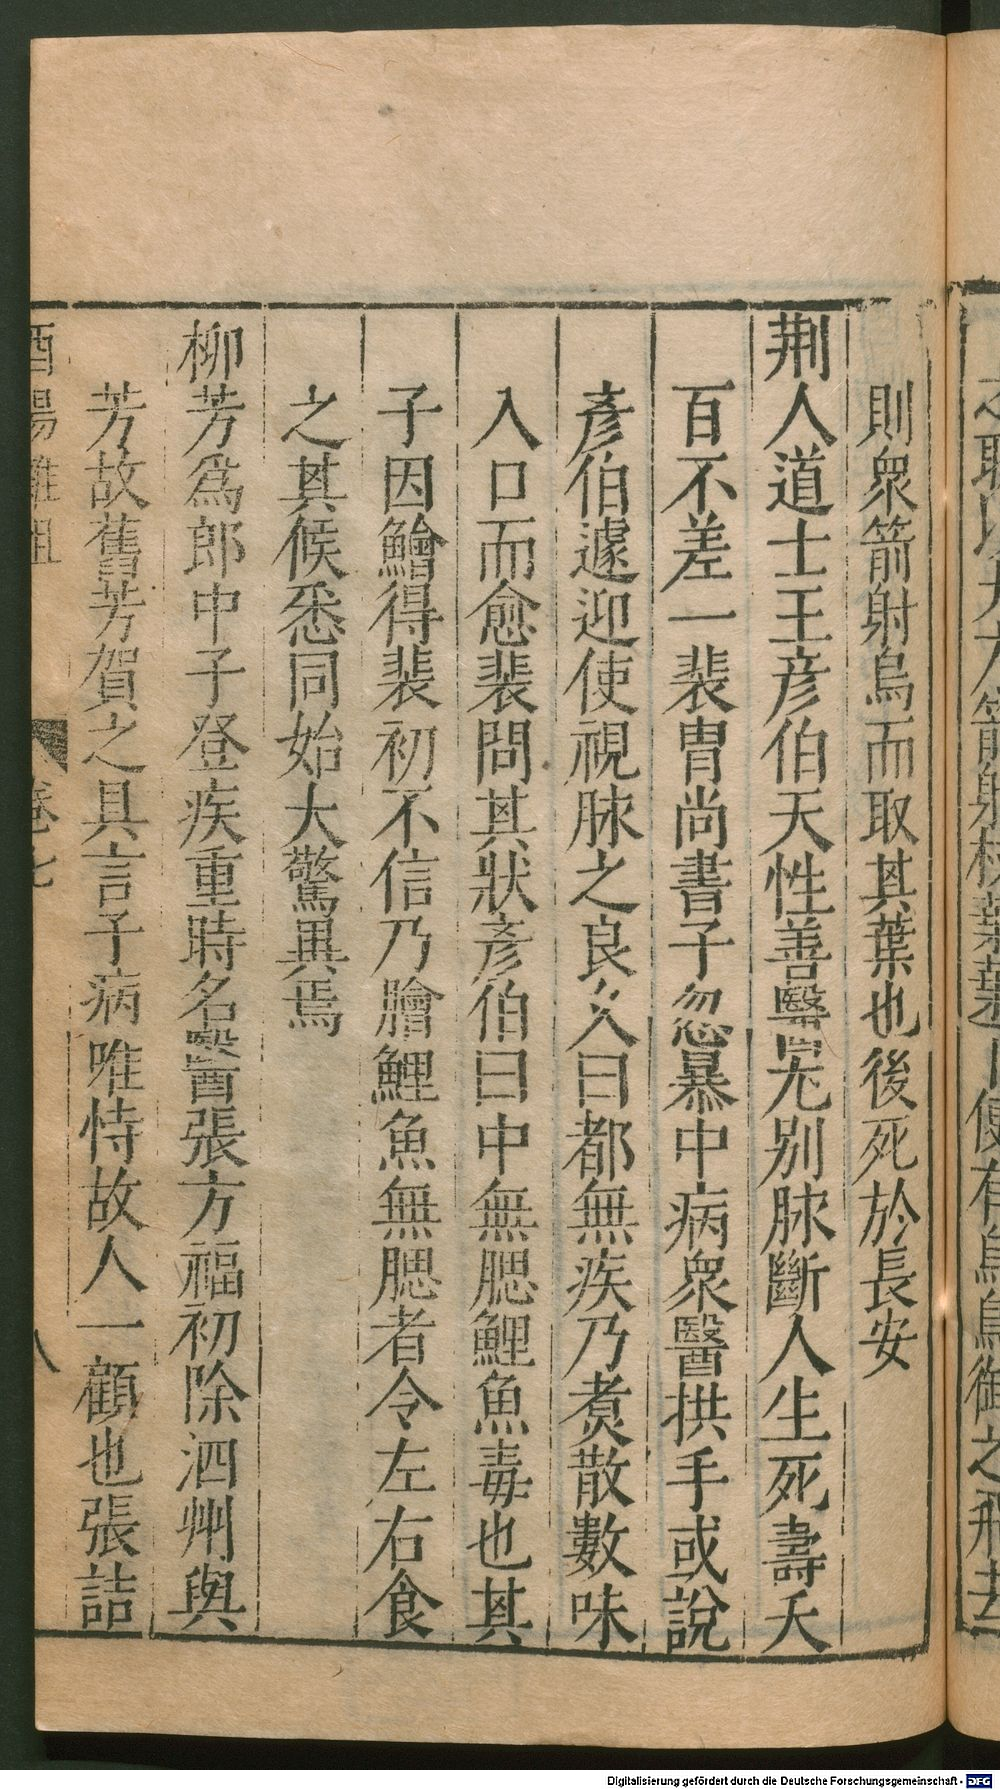 則衆箭射烏而取其葉也後死於長安
荆人道士王彥伯天性善醫尤別脉斷人生死壽夭
百不差一裴冑尚書子忽暴中病衆醫拱手或說
彥伯遽迎使視脉之良久曰都無疾乃煮散數味
入口而愈裴問其狀彥伯曰中無腮鯉魚毒也其
子因鱠得裴初不信乃膾鯉魚無腮者令左右食
之其候悉同始大驚異焉
柳芳爲郎中子登疾重時名醫張方福初除泗州與
芳故舊芳賀之具言子病唯恃故人一顧也張詰
酉陽雜俎
卷七
八
Digitalisierung gefördert durch die Deutsche Forschungsgemeinschaft - DFG